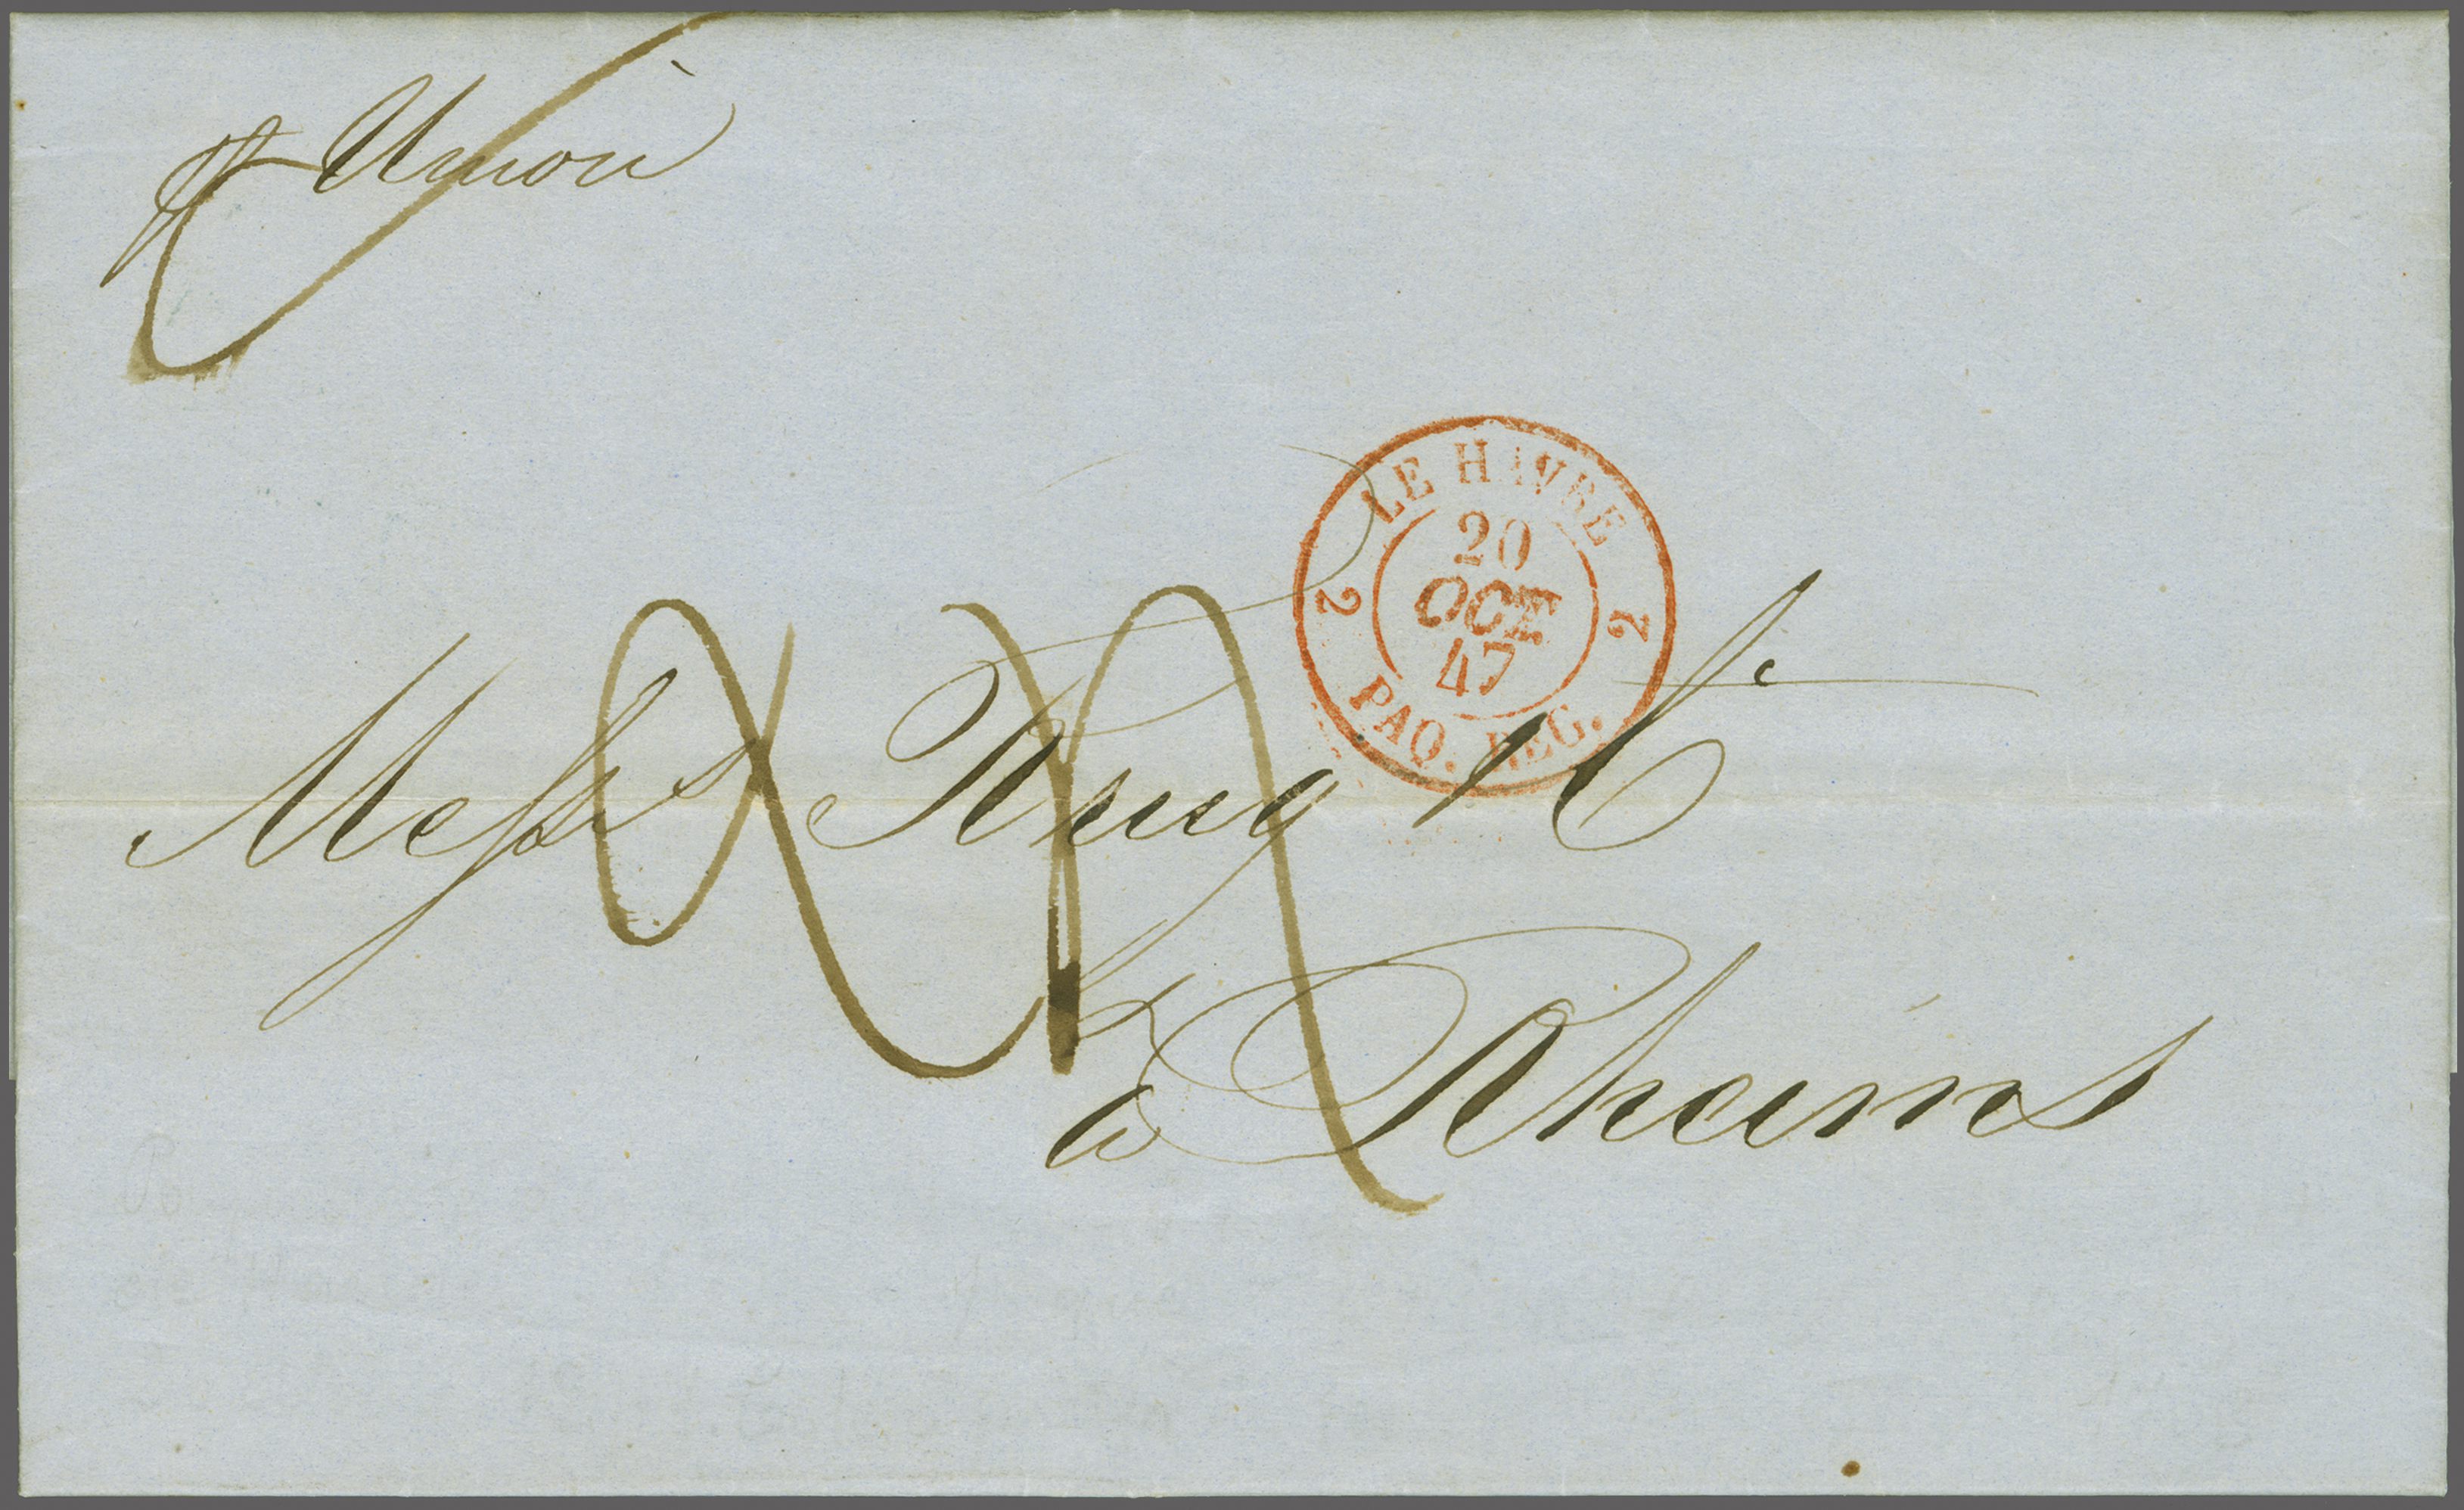 p Union
LE HAVRE
2 20 2
OCT.
47
PAQ. REG.
Messrs Krug & Co
à Rheims